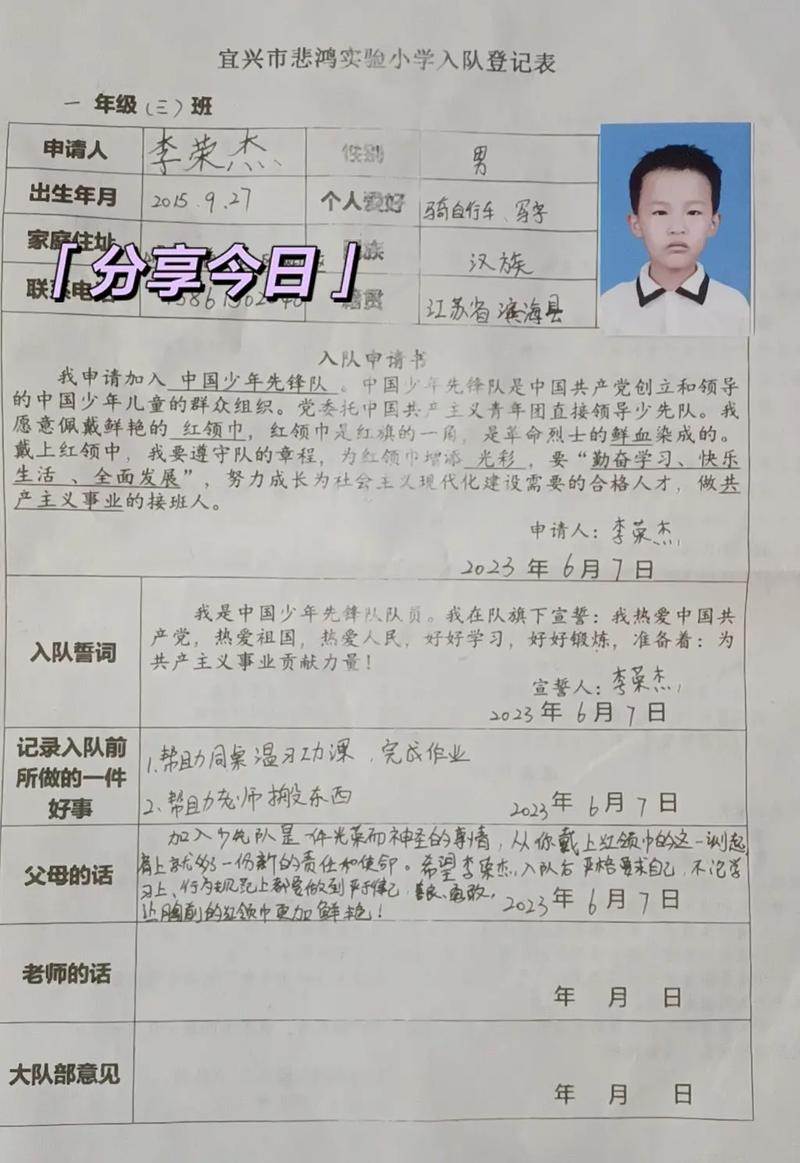 宜兴市悲鸿实验小学入队登记表
一 年级（三）班
申请人 李荣杰 性别 男
出生年月 2015.9.27 个人爱好 骑自行车、写字
家庭住址 民族 汉族
「分享今日」
联系电话 籍贯 江苏省滨海县
入队申请书
我申请加入 中国少年先锋队 。中国少年先锋队是中国共产党创立和领导
的中国少年儿童的群众组织。党委托中国共产主义青年团直接领导少先队。我
愿意佩戴鲜艳的 红领巾，红领巾是红旗的一角，是革命烈士的鲜血染成的。
戴上红领巾，我要遵守队的章程，为红领巾增添 光彩 ，要“勤奋学习、快乐
生活 、全面发展”，努力成长为社会主义现代化建设需要的合格人才，做共
产主义事业的接班人。
申请人：李荣杰
2023 年 6 月 7 日
入队誓词
我是中国少年先锋队队员。我在队旗下宣誓：我热爱中国共
产党，热爱祖国，热爱人民，好好学习，好好锻炼，准备着：为
共产主义事业贡献力量！
宣誓人：李荣杰
2023 年 6 月 7 日
记录入队前
所做的一件
好事
1.帮助同桌温习功课，完成作业
2.帮助老师搬东西
2023 年 6 月 7 日
父母的话
加入少先队是一件光荣而神圣的事情，从你戴上红领巾的这一刻起，
肩上就多了一份新的责任和使命。希望李荣杰，入队后严格要求自己，不论学
习上、行为规范上都要做到严于律己，善良、勇敢，
让胸前的红领巾更加鲜艳！
2023 年 6 月 7 日
老师的话
年 月 日
大队部意见
年 月 日